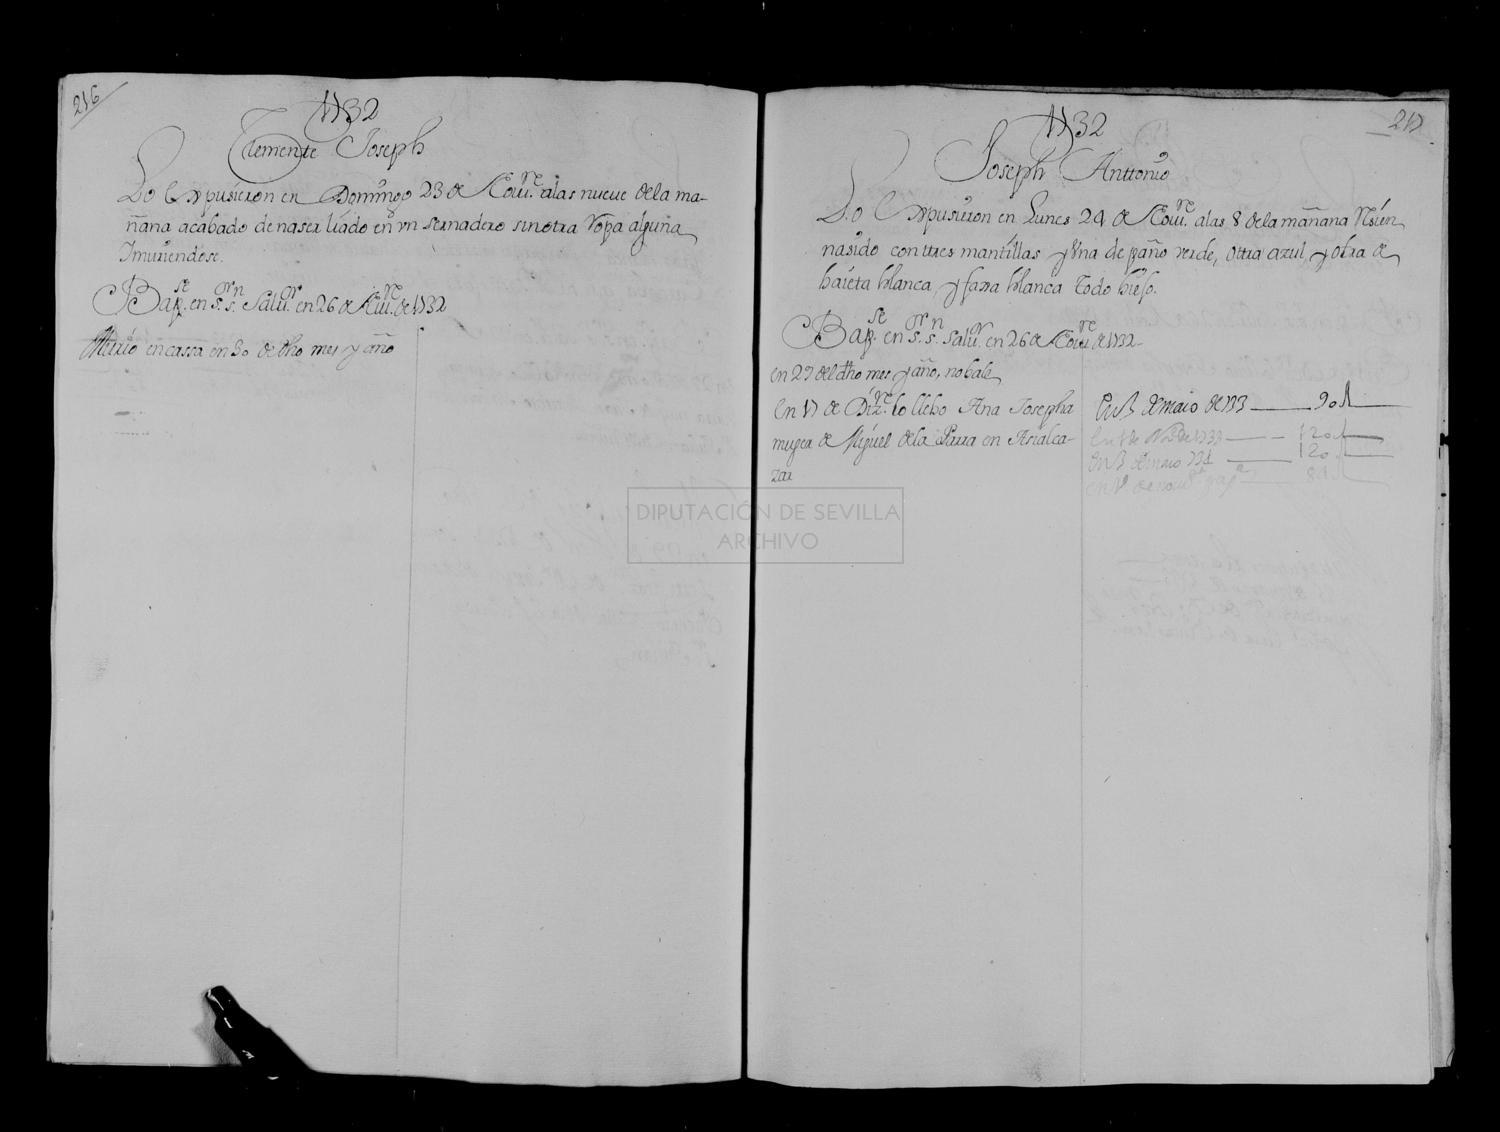 216
1732
Clemente Joseph
Lo Expusieron en Domingo 23 de Nou.re a las nueue de la ma-
ñana acabado de naser liado en vn sernadero sin otra Ropa alguna
I muriendose.
Bap.se en S.r S.n Salu.r en 26 de Nou.re de 1732
Murio en cassa en 30 de dho mes y año
217
1732
Joseph Anttonio
Lo Expusieron en Lunes 24 de Nou.re a las 8 de la mañana Rsien
nasido con ttres mantillas y Vna de paño verde, ottra azul, y otra de
baieta blanca, y faxa blanca todo biejo.
Bap.se en S.r S.n Salu.r en 26 de Nou.re de 1732
en 27 del dho mes y año, no bale
En 17 de Diz.re lo llebo Ana Josepha
muger de Miguel de la Parra en Asnalca-
zar
de maio de 733 90
120
de maio 734 120
84
DIPUTACIÓN DE SEVILLA
ARCHIVO